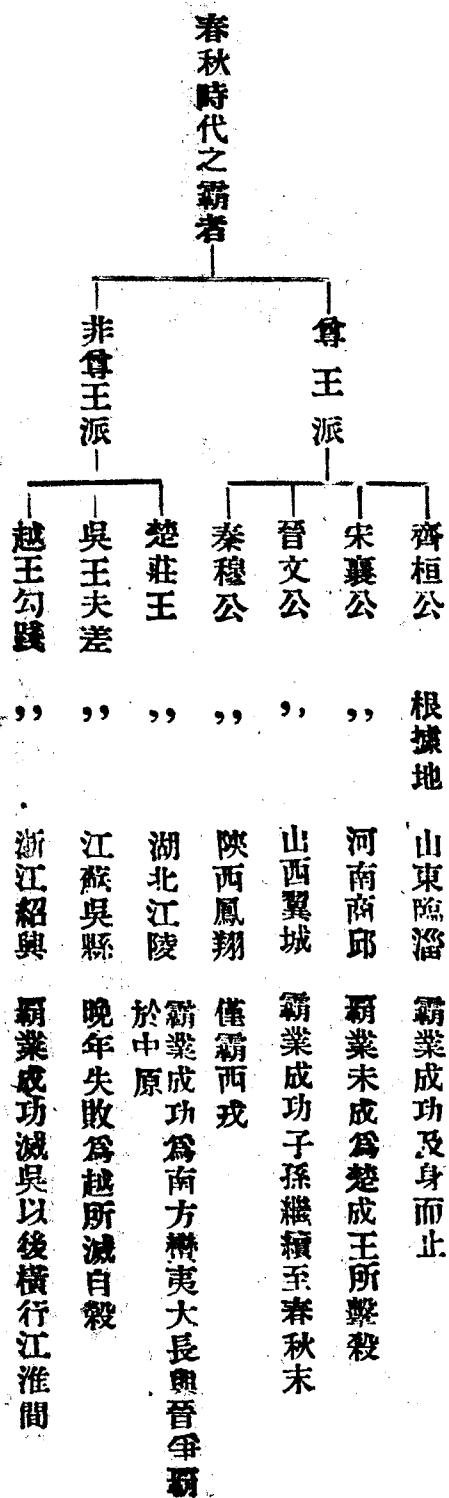 春秋時代之霸者
尊王派
齊桓公 根據地 山東臨淄 霸業成功及身而止
宋襄公 ,, 河南商邱 霸業未成爲楚成王所擊殺
晉文公 ,, 山西翼城 霸業成功子孫繼續至春秋末
秦穆公 ,, 陝西鳳翔 僅霸西戎
非尊王派
楚莊王 ,, 湖北江陵 霸業成功爲南方蠻夷大長與晉爭霸
於中原
吳王夫差 ,, 江蘇吳縣 晚年失敗爲越所滅自殺
越王勾踐 ,, 浙江紹興 霸業成功滅吳以後橫行江淮間